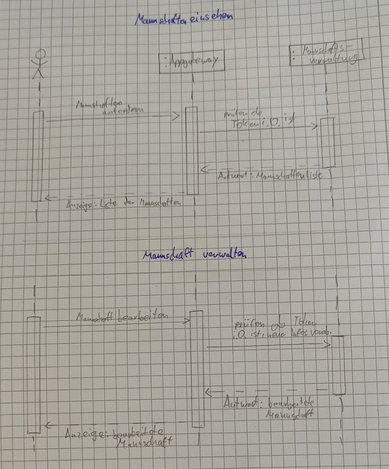 Mannschaften einsehen
:Appgateway
:Mannschafts-
verwaltung
Mannschaften
prüfen ob
Token i.O. ist
Antwort: Mannschaftenliste
Anzeige: Liste der Mannschaften
Mannschaft verwalten
Mannschaft bearbeiten
prüfen ob Token
i.O. ist, neue Infos
Antwort: bearbeitete
Mannschaft
Anzeige: bearbeitete
Mannschaft